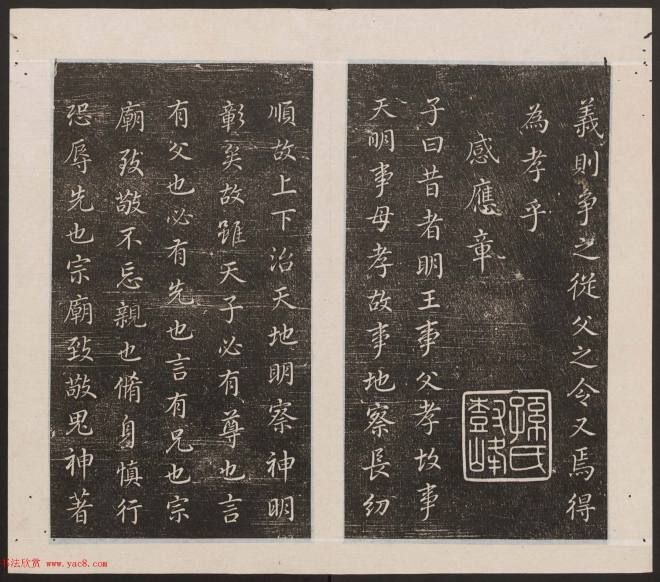 義則争之從父之令又焉得
為孝乎
感應章
子曰昔者明王事父孝故事
天明事母孝故事地察長幼
順故上下治天地明察神明
彰矣故雖天子必有尊也言
有父也必有先也言有兄也宗
廟致敬不忘親也脩身慎行
恐辱先也宗廟致敬鬼神著
孫氏
书法欣赏 www.yac8.com